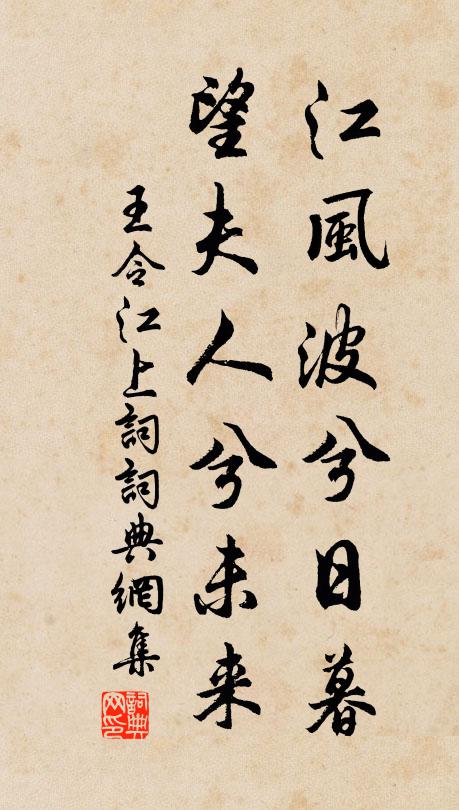 江風波兮日暮
望夫人兮未来
王令江上詞詞典網集
詞典网印